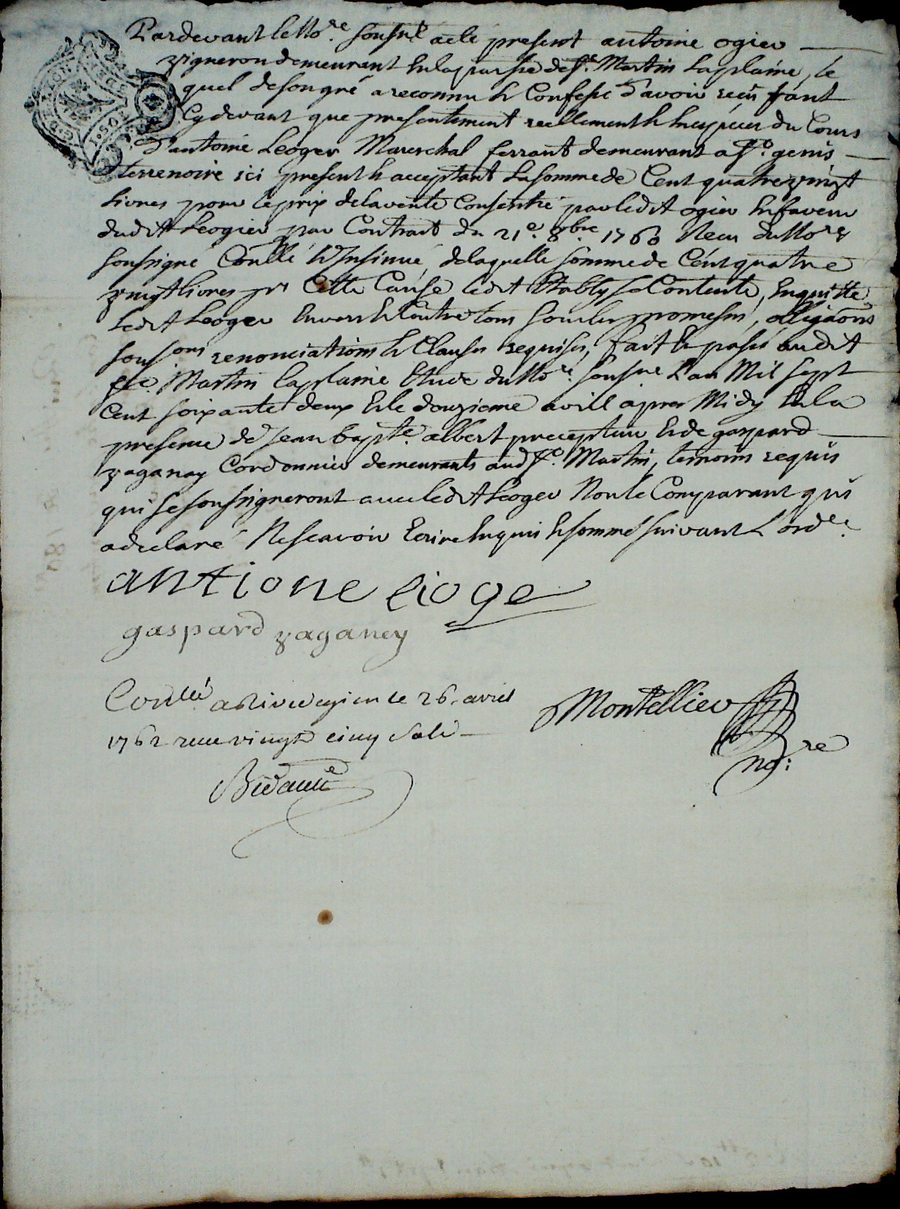 Pardevant le no.re soussné a eté present antoine ogier
vigneron demeurant en la parsse de St. Martin La plaine, le
quel de son gré a reconnu & Confessé d'avoir reçu tant
Cy devant que presentement reellement & en especes du Cours
D'antoine Leoger Mareschal ferrant demeurant a St. genis
terrenoire ici present & acceptant La somme de Cent quatre vingt
Livres pour le prix de la vente Consentie par ledit ogier en faveur
dudit Leogier par Contract du 21e. 8bre 1760 Receu du No.re
soussigné Coullé & Insinué de laquelle somme de Cent quatre
vingt livres pr. Cette Cause ledt Etably se Contente, En quitte
Ledit Leoger Envers & Contre tous sous les promesses, obligaõns
sousons renonciations & Clauses requises, fait & passé audit
St. Martin La plaine Etude du No.re soussné L'an Mil sept
Cent soixante deux & le douzieme avill apres Midy En la
presence de Jean bapte. albert precepteur & de gaspard
zaganay Cordonnier demeurants aud St. Martin, temoins requis
qui se soussigneront avec ledit Leoger Non le Comparant qui
a declaré Ne scavoir Ecrire Enquis & sommé suivant L'ordce.
antione lioge
gaspard zaganey
Conllé a Rivedegier le 26. avril
1762 receu vingt cinq sols
Montellier
no:re